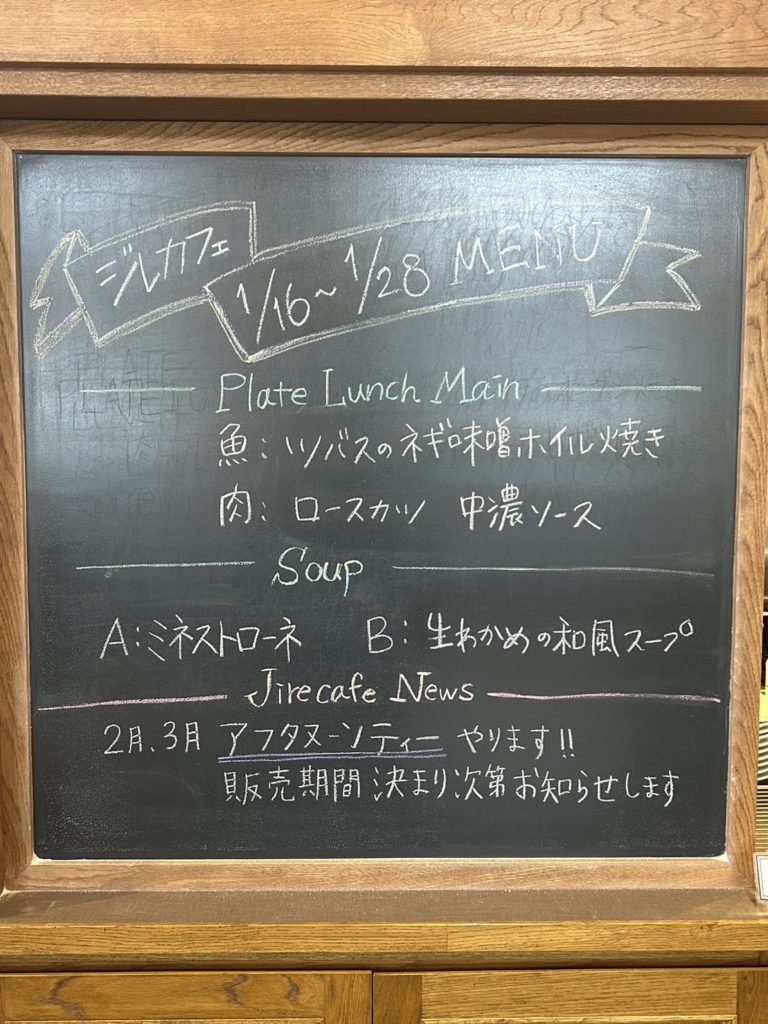 ジルカフェ
1/16~1/28 MENU
Plate Lunch Main
魚: ツバスのネギ味噌ホイル焼き
肉: ロースカツ 中濃ソース
Soup
A:ミネストローネ B: 生わかめの和風スープ
Jirecafe News
2月、3月 アフタヌーンティー やります!!
販売期間決まり次第お知らせします